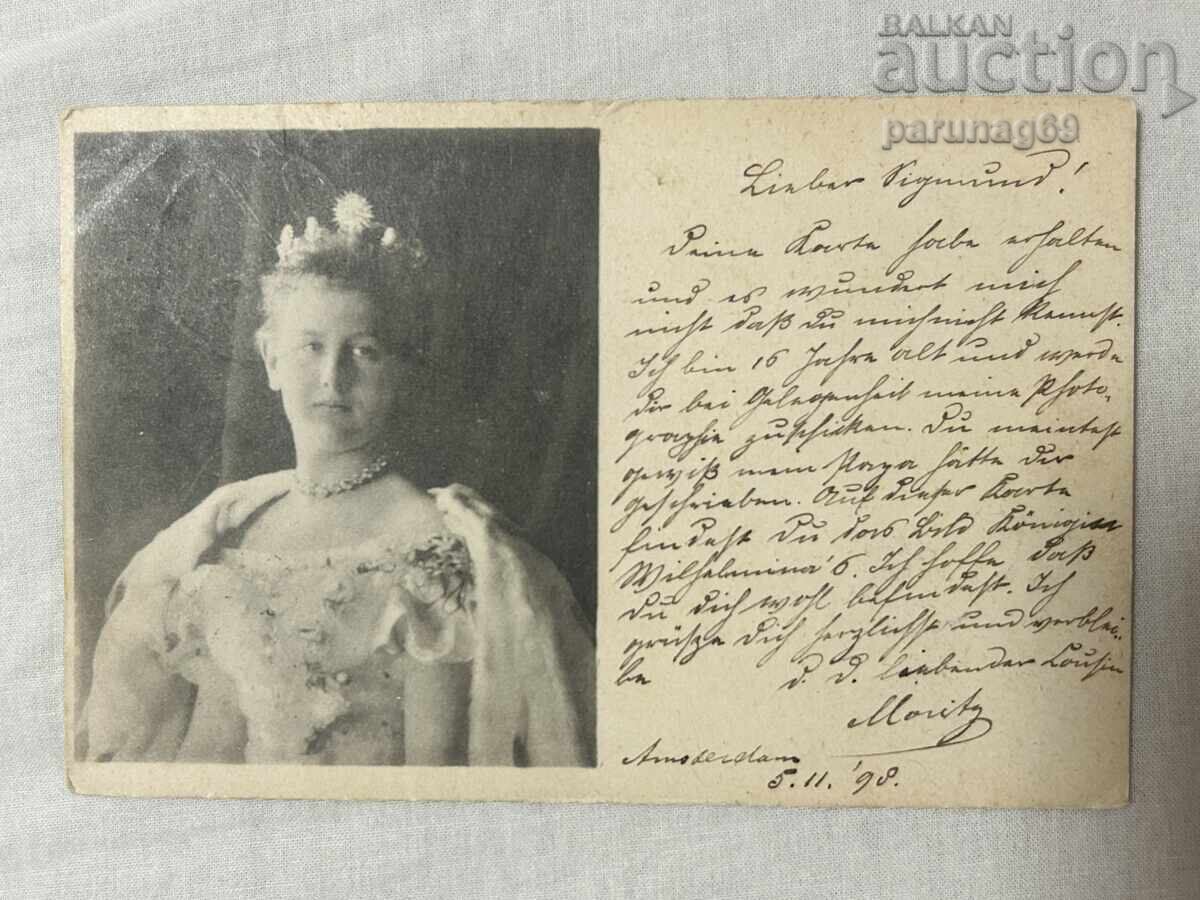 BALKAN
auction
parunag69
Lieber Sigmund!
Deine Karte habe erhalten
und es wundert mich
nicht daß du mich nicht kennst.
Ich bin 16 Jahre alt und werde
dir bei Gelegenheit meine Photo-
graphie zuschicken. Du meintest
gewiß mein Papa hätte dir
geschrieben. Auf dieser Karte
findest Du das Bild Königin
Wilhelmina's. Ich hoffe daß
du dich wohl befindest. Ich
grüße dich herzlichst und verblei-
be d. d. liebender Cousin
Moritz
Amsderdam
5.11.'98.